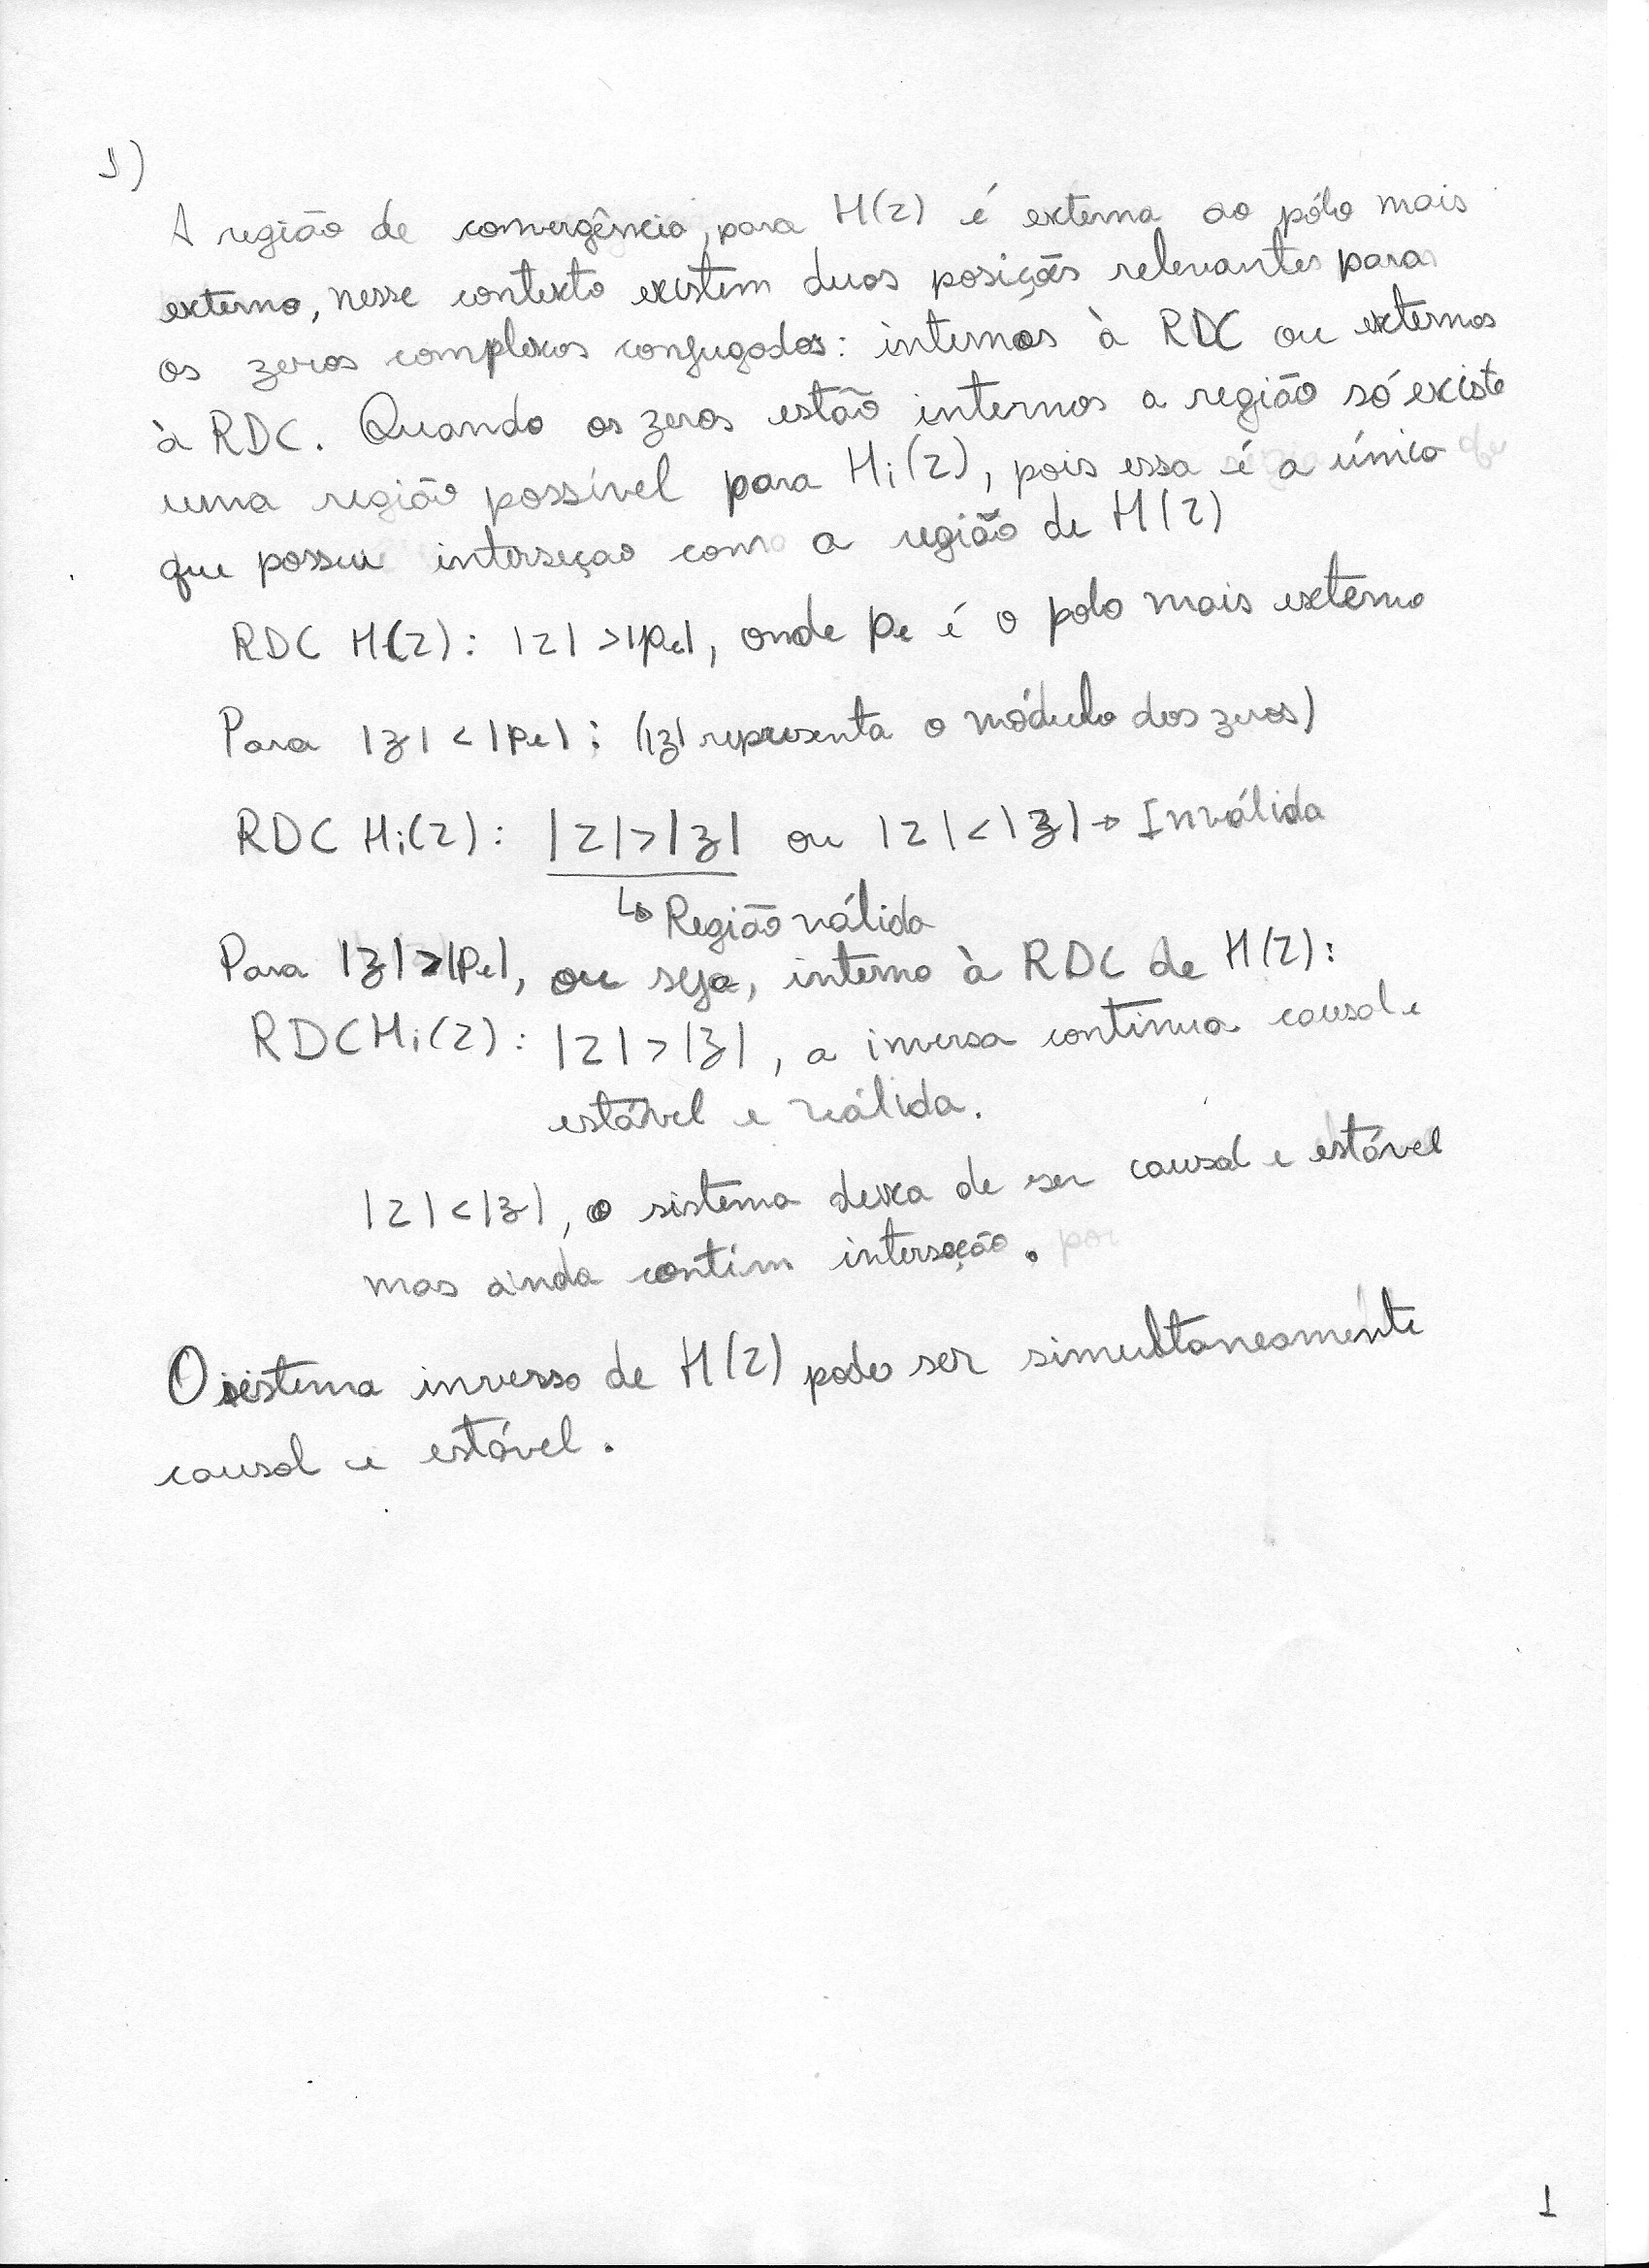 1)
A região de convergência para H(z) é externa ao pólo mais
externo, nesse contexto existem duas posições relevantes para
os zeros complexos conjugados: internos à RDC ou externos
à RDC. Quando os zeros estão internos a região só existe
uma região possível para Hi(z), pois essa é a única
que possui interseçao com a região de H(z)
RDC H(z): |z| > |pe|, onde pe é o polo mais externo
Para |ʒ| < |pe|: (|ʒ| representa o módulo dos zeros)
RDC Hi(z): |z| > |ʒ| ou |z| < |ʒ| → Inválida
↳ Região válida
Para |ʒ| > |pe|, ou seja, interno à RDC de H(z):
RDC Hi(z): |z| > |ʒ|, a inversa continua causal e
estável e válida.
|z| < |ʒ|, o sistema deixa de ser causal e estável
mas ainda contém interseção.
O sistema inverso de H(z) pode ser simultaneamente
causal e estável.
1